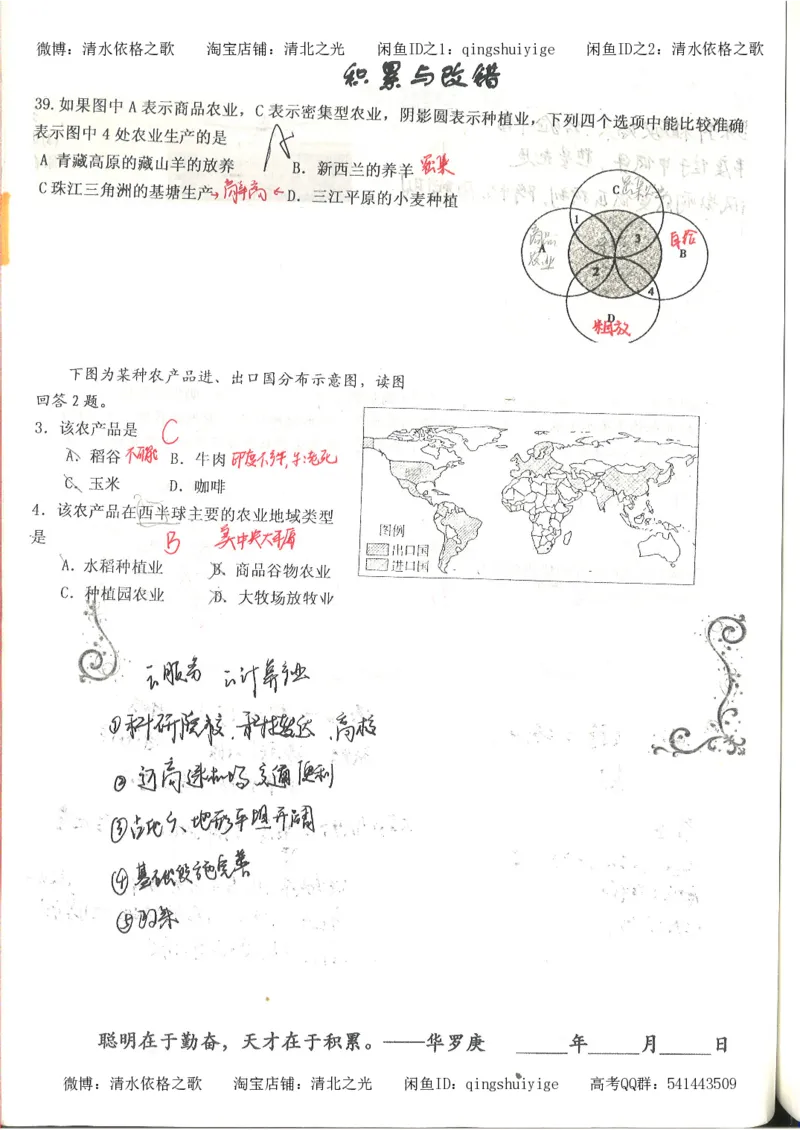 微博：清水依格之歌 淘宝店铺：清北之光 闲鱼ID之1：qingshuiyige 闲鱼ID之2：清水依格之歌
积累与改错
39.如果图中 A 表示商品农业，C 表示密集型农业，阴影圆表示种植业，下列四个选项中能比较准确
表示图中 4 处农业生产的是
A
A 青藏高原的藏山羊的放养 B．新西兰的养羊 密集
C 珠江三角洲的基塘生产 商率高 D．三江平原的小麦种植
C 密集
1
3
商品农业
A
自给
B
2
4
D
粗放
下图为某种农产品进、出口国分布示意图，读图
回答 2 题。
3．该农产品是 C
A、稻谷 B．牛肉 印度不产,牛老死
C、玉米 D．咖啡
4．该农产品在西半球主要的农业地域类型
是 B 美中央大平原
A．水稻种植业 B．商品谷物农业
C．种植园农业 D．大牧场放牧业
图例
出口国
进口国
云服务 云计算产业
①科研院校、科技发达、高校
②近高速机场 交通便利
③占地广、地形平坦开阔
④基础设施完善
⑤政策
聪明在于勤奋，天才在于积累。——华罗庚 年 月 日
微博：清水依格之歌 淘宝店铺：清北之光 闲鱼ID：qingshuiyige 高考QQ群：541443509